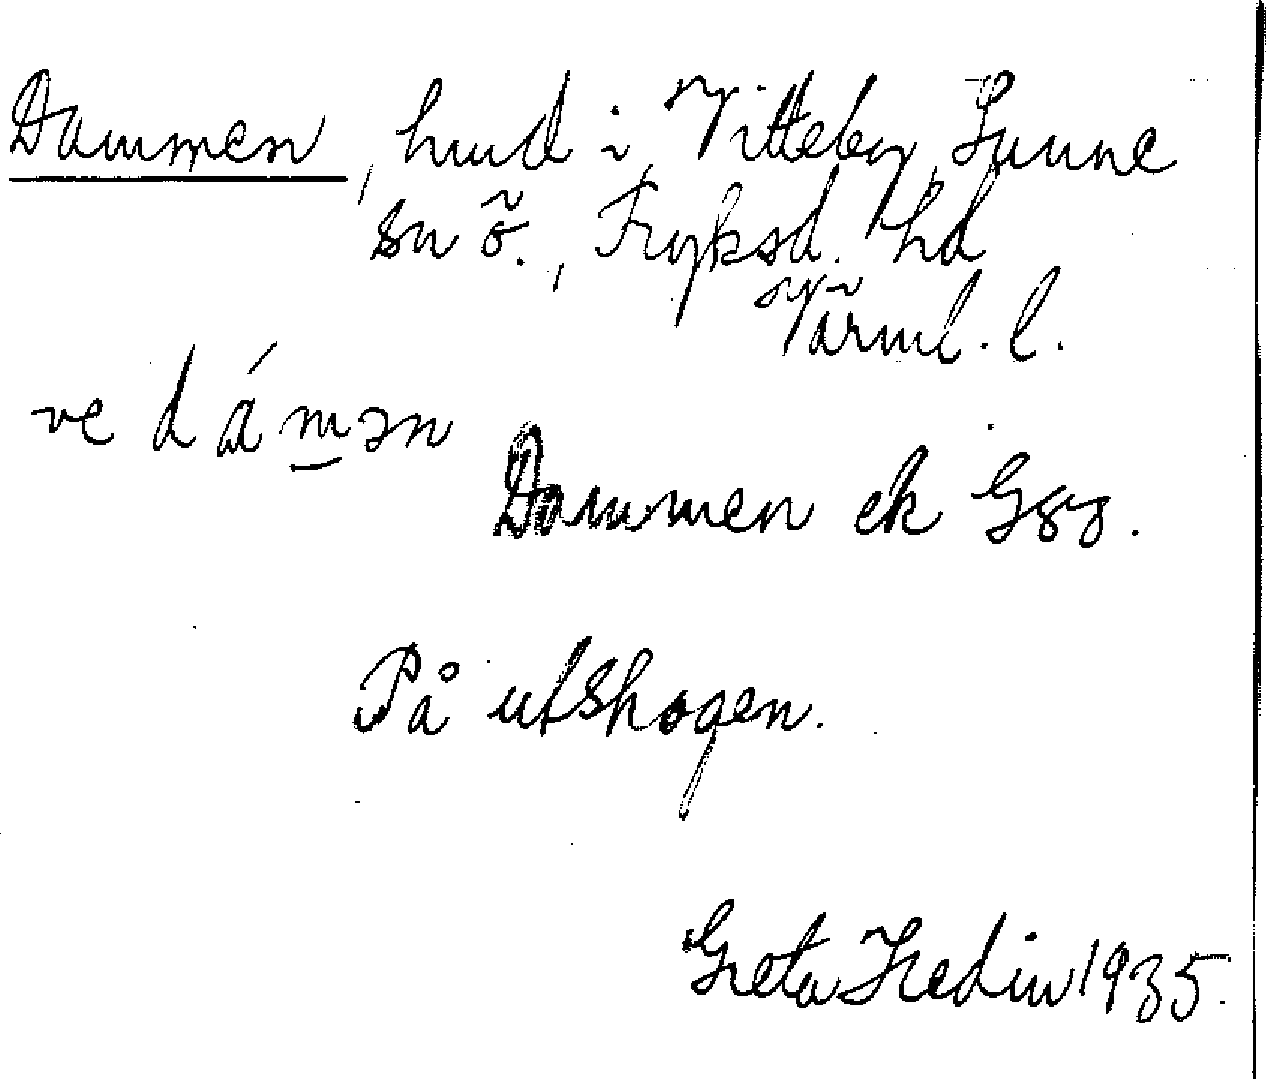 Dammen, hmd i Vitteby, Sunne
sn ö., Fryksd. hd
Värml. l.
ve dám̲ən
Dammen ek G88.
På utskogen.
Greta Hedin 1935.